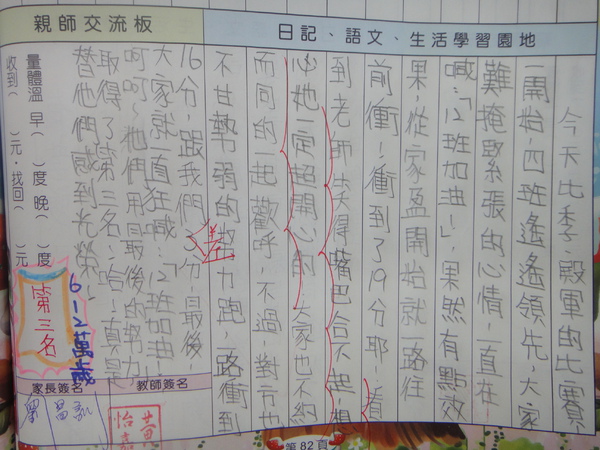 親師交流板
日記、語文、生活學習園地
今天比季殿軍的比賽
一開始,四班遙遙領先,大家
難掩緊張的心情,一直在
喊:「12班加油!」果然有點效
果,從家盈開始就一路往
前衝!衝到了19分耶!看
到老師笑得嘴巴合不起,想
必她一定超開心的,大家也不約
而同的一起歡呼,不過,對方也
不甘勢弱的努力跑,一路衝到
16分,跟我們差3分,最後,
大家就一直狂喊:「12班加油!
呵呵~他們用最後的努力
取得了第三名!哈!真是
替他們感到光榮!
量體溫 早( )度 晚( )度
收到( )元,找回( )元
6-12萬歲
第三名
家長簽名
教師簽名
黃怡嘉
第82頁